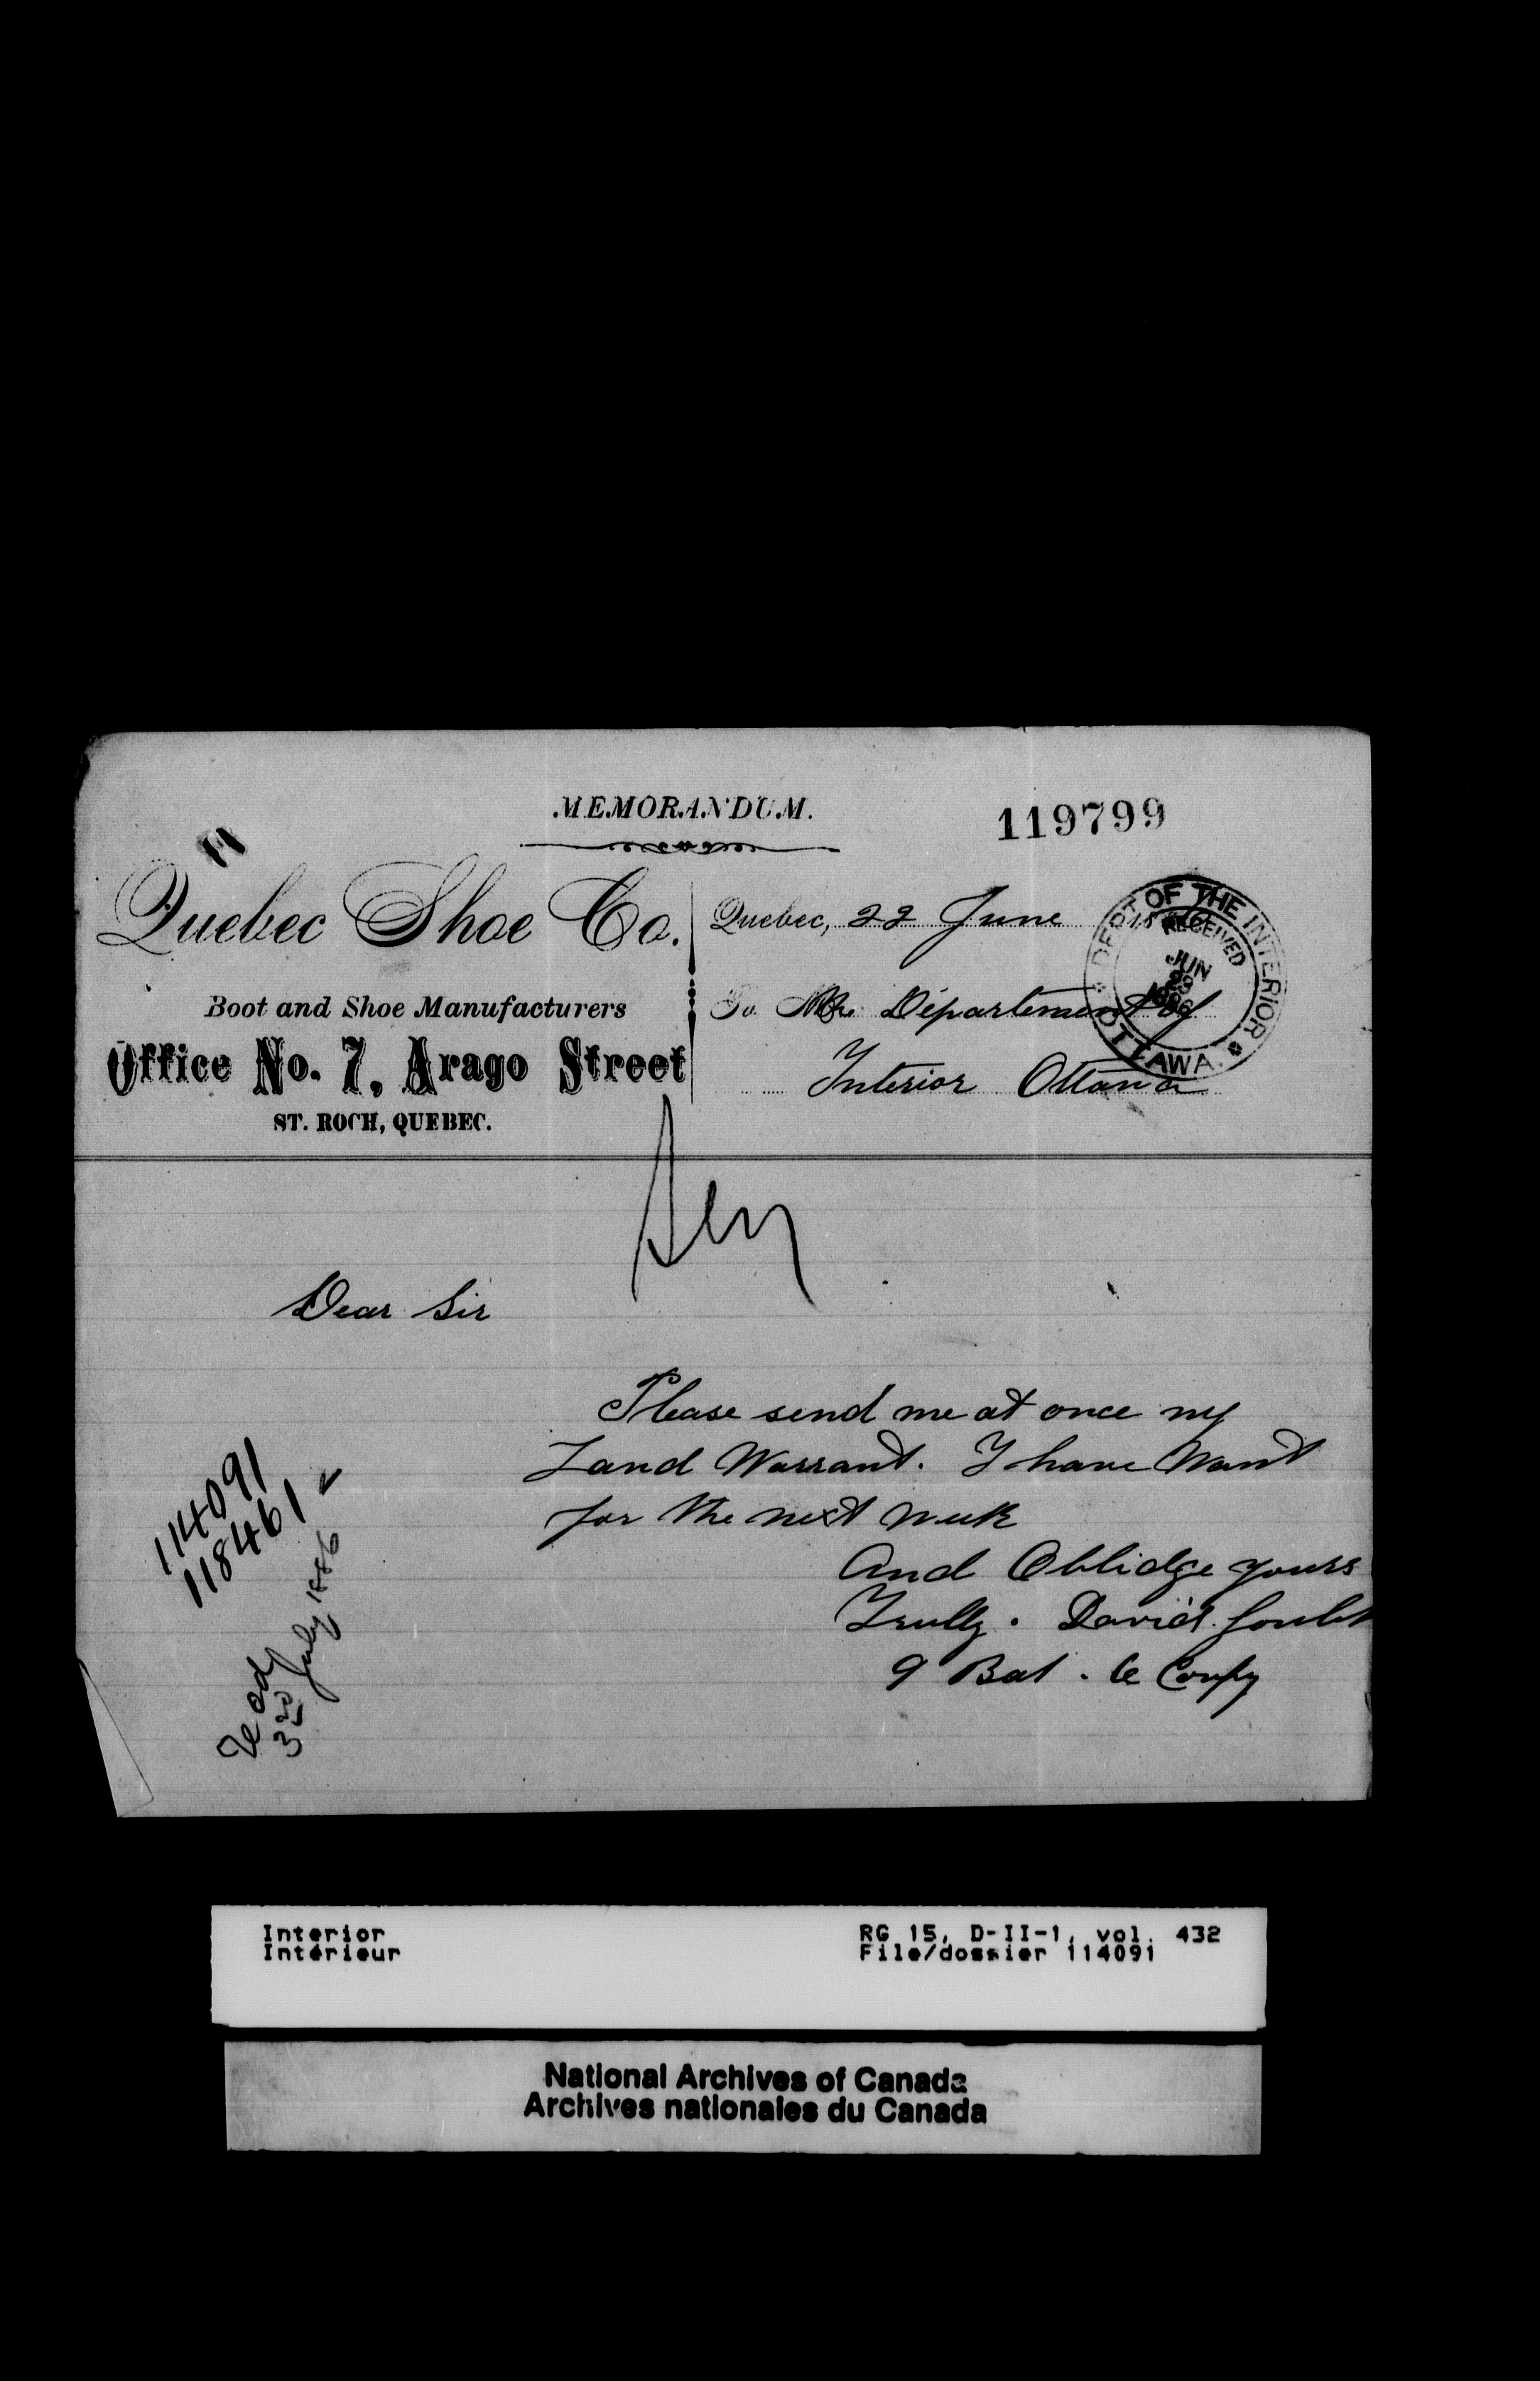 MEMORANDUM.
119799
Quebec Shoe Co.
Boot and Shoe Manufacturers
Office No. 7, Arago Street
ST. ROCH, QUEBEC.
Quebec, 22 June
To The Département of
Interior Ottawa
DEPT OF THE INTERIOR
RECEIVED
JUN
23
1886
OTTAWA.
Dear Sir
Please send me at once my
Land Warrant. I have Want
for the next week
And Oblidge yours
Trully. David Goulet
9 Bat. Co Compy
114091
118461
3rd July 1886
Interior
Intérieur
RG 15, D-II-1, vol. 432
File/dossier 114091
National Archives of Canada
Archives nationales du Canada